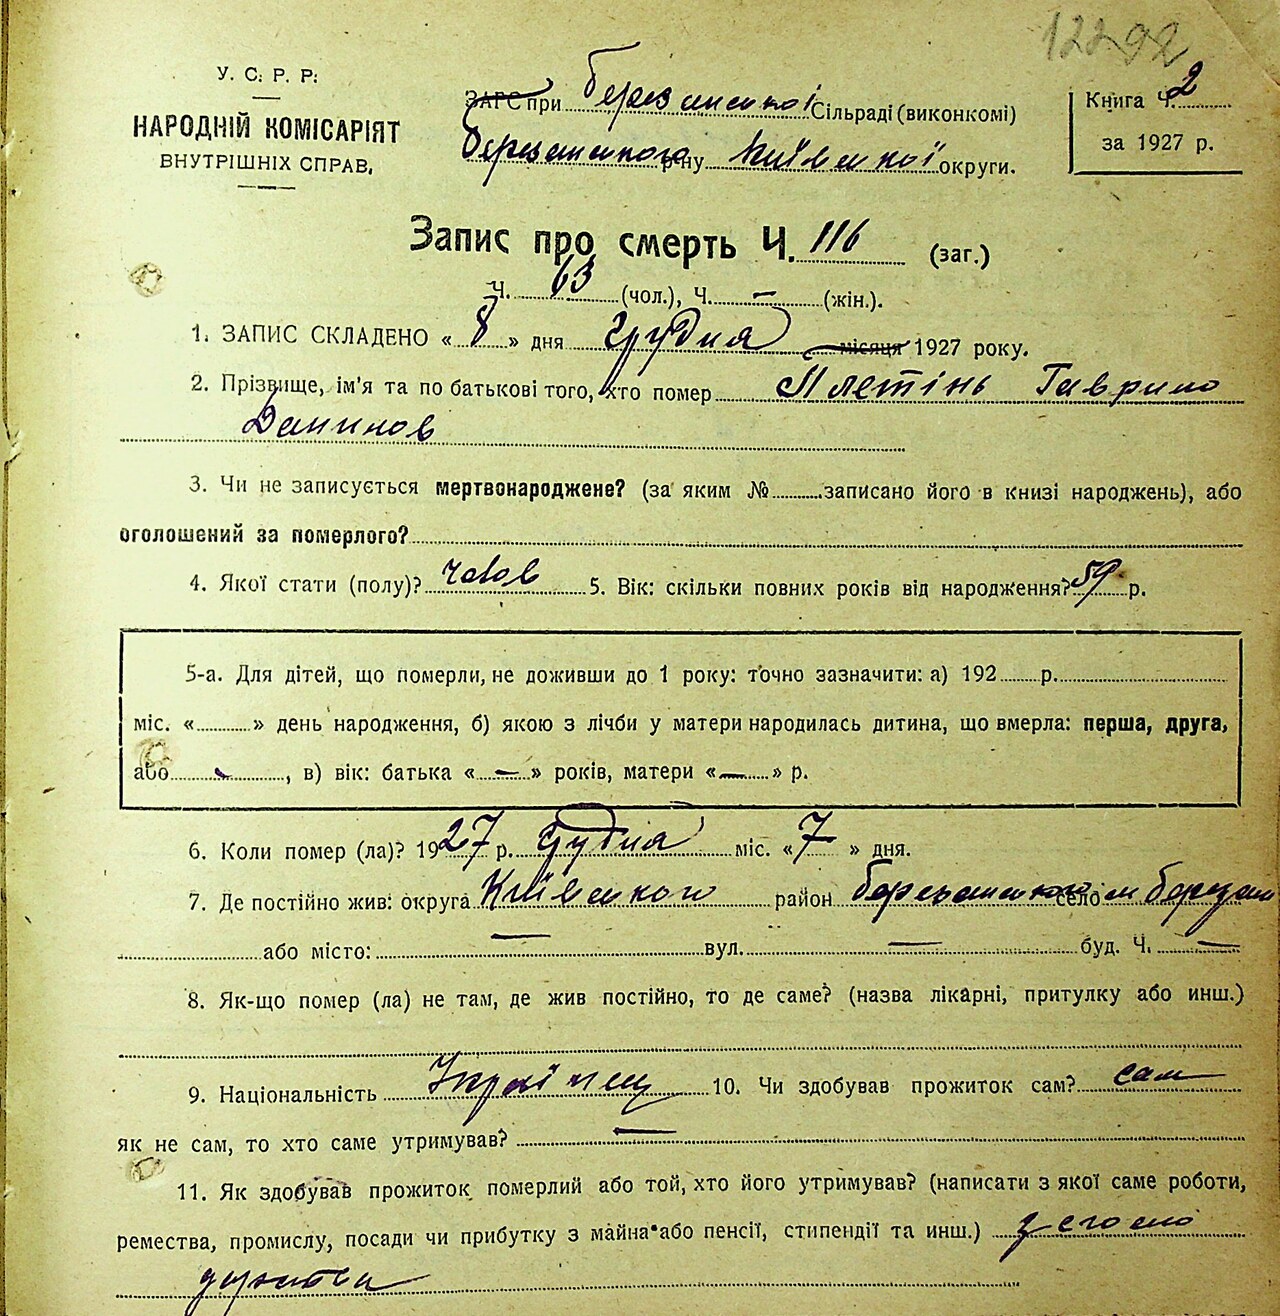 12292
У. С. Р. Р.
НАРОДНІЙ КОМІСАРІЯТ
ВНУТРІШНІХ СПРАВ,
ЗАГС при Березанській Сільраді (виконкомі)
Березанського р-ну Київської округи.
Книга Ч. 2
за 1927 р.
Запис про смерть Ч. 116 (заг.)
Ч. 63 (чол.), Ч. — (жін.).
1. ЗАПИС СКЛАДЕНО « 8 » дня Грудня місяця 1927 року.
2. Прізвище, ім'я та по батькові того, хто помер Плетінь Гаврило
Данилов
3. Чи не записується мертвонароджене? (за яким № записано його в книзі народжень), або
оголошений за померлого?
4. Якої стати (полу)? чолов 5. Вік: скільки повних років від народження? 59 р.
5-а. Для дітей, що померли, не доживши до 1 року: точно зазначити: а) 192 р.
міс. « » день народження, б) якою з лічби у матери народилась дитина, що вмерла: перша, друга,
або , в) вік: батька « — » років, матери « — » р.
6. Коли помер (ла)? 1927 р. Грудня міс. « 7 » дня.
7. Де постійно жив: округа Київського район Березанського село м Березань
або місто: — вул. — буд. Ч. —
8. Як-що помер (ла) не там, де жив постійно, то де саме? (назва лікарні, притулку або инш.)
9. Національність Українец 10. Чи здобував прожиток сам? сам
як не сам, то хто саме утримував? —
11. Як здобував прожиток померлий або той, хто його утримував? (написати з якої саме роботи,
ремества, промислу, посади чи прибутку з майна або пенсії, стипендії та инш.) з